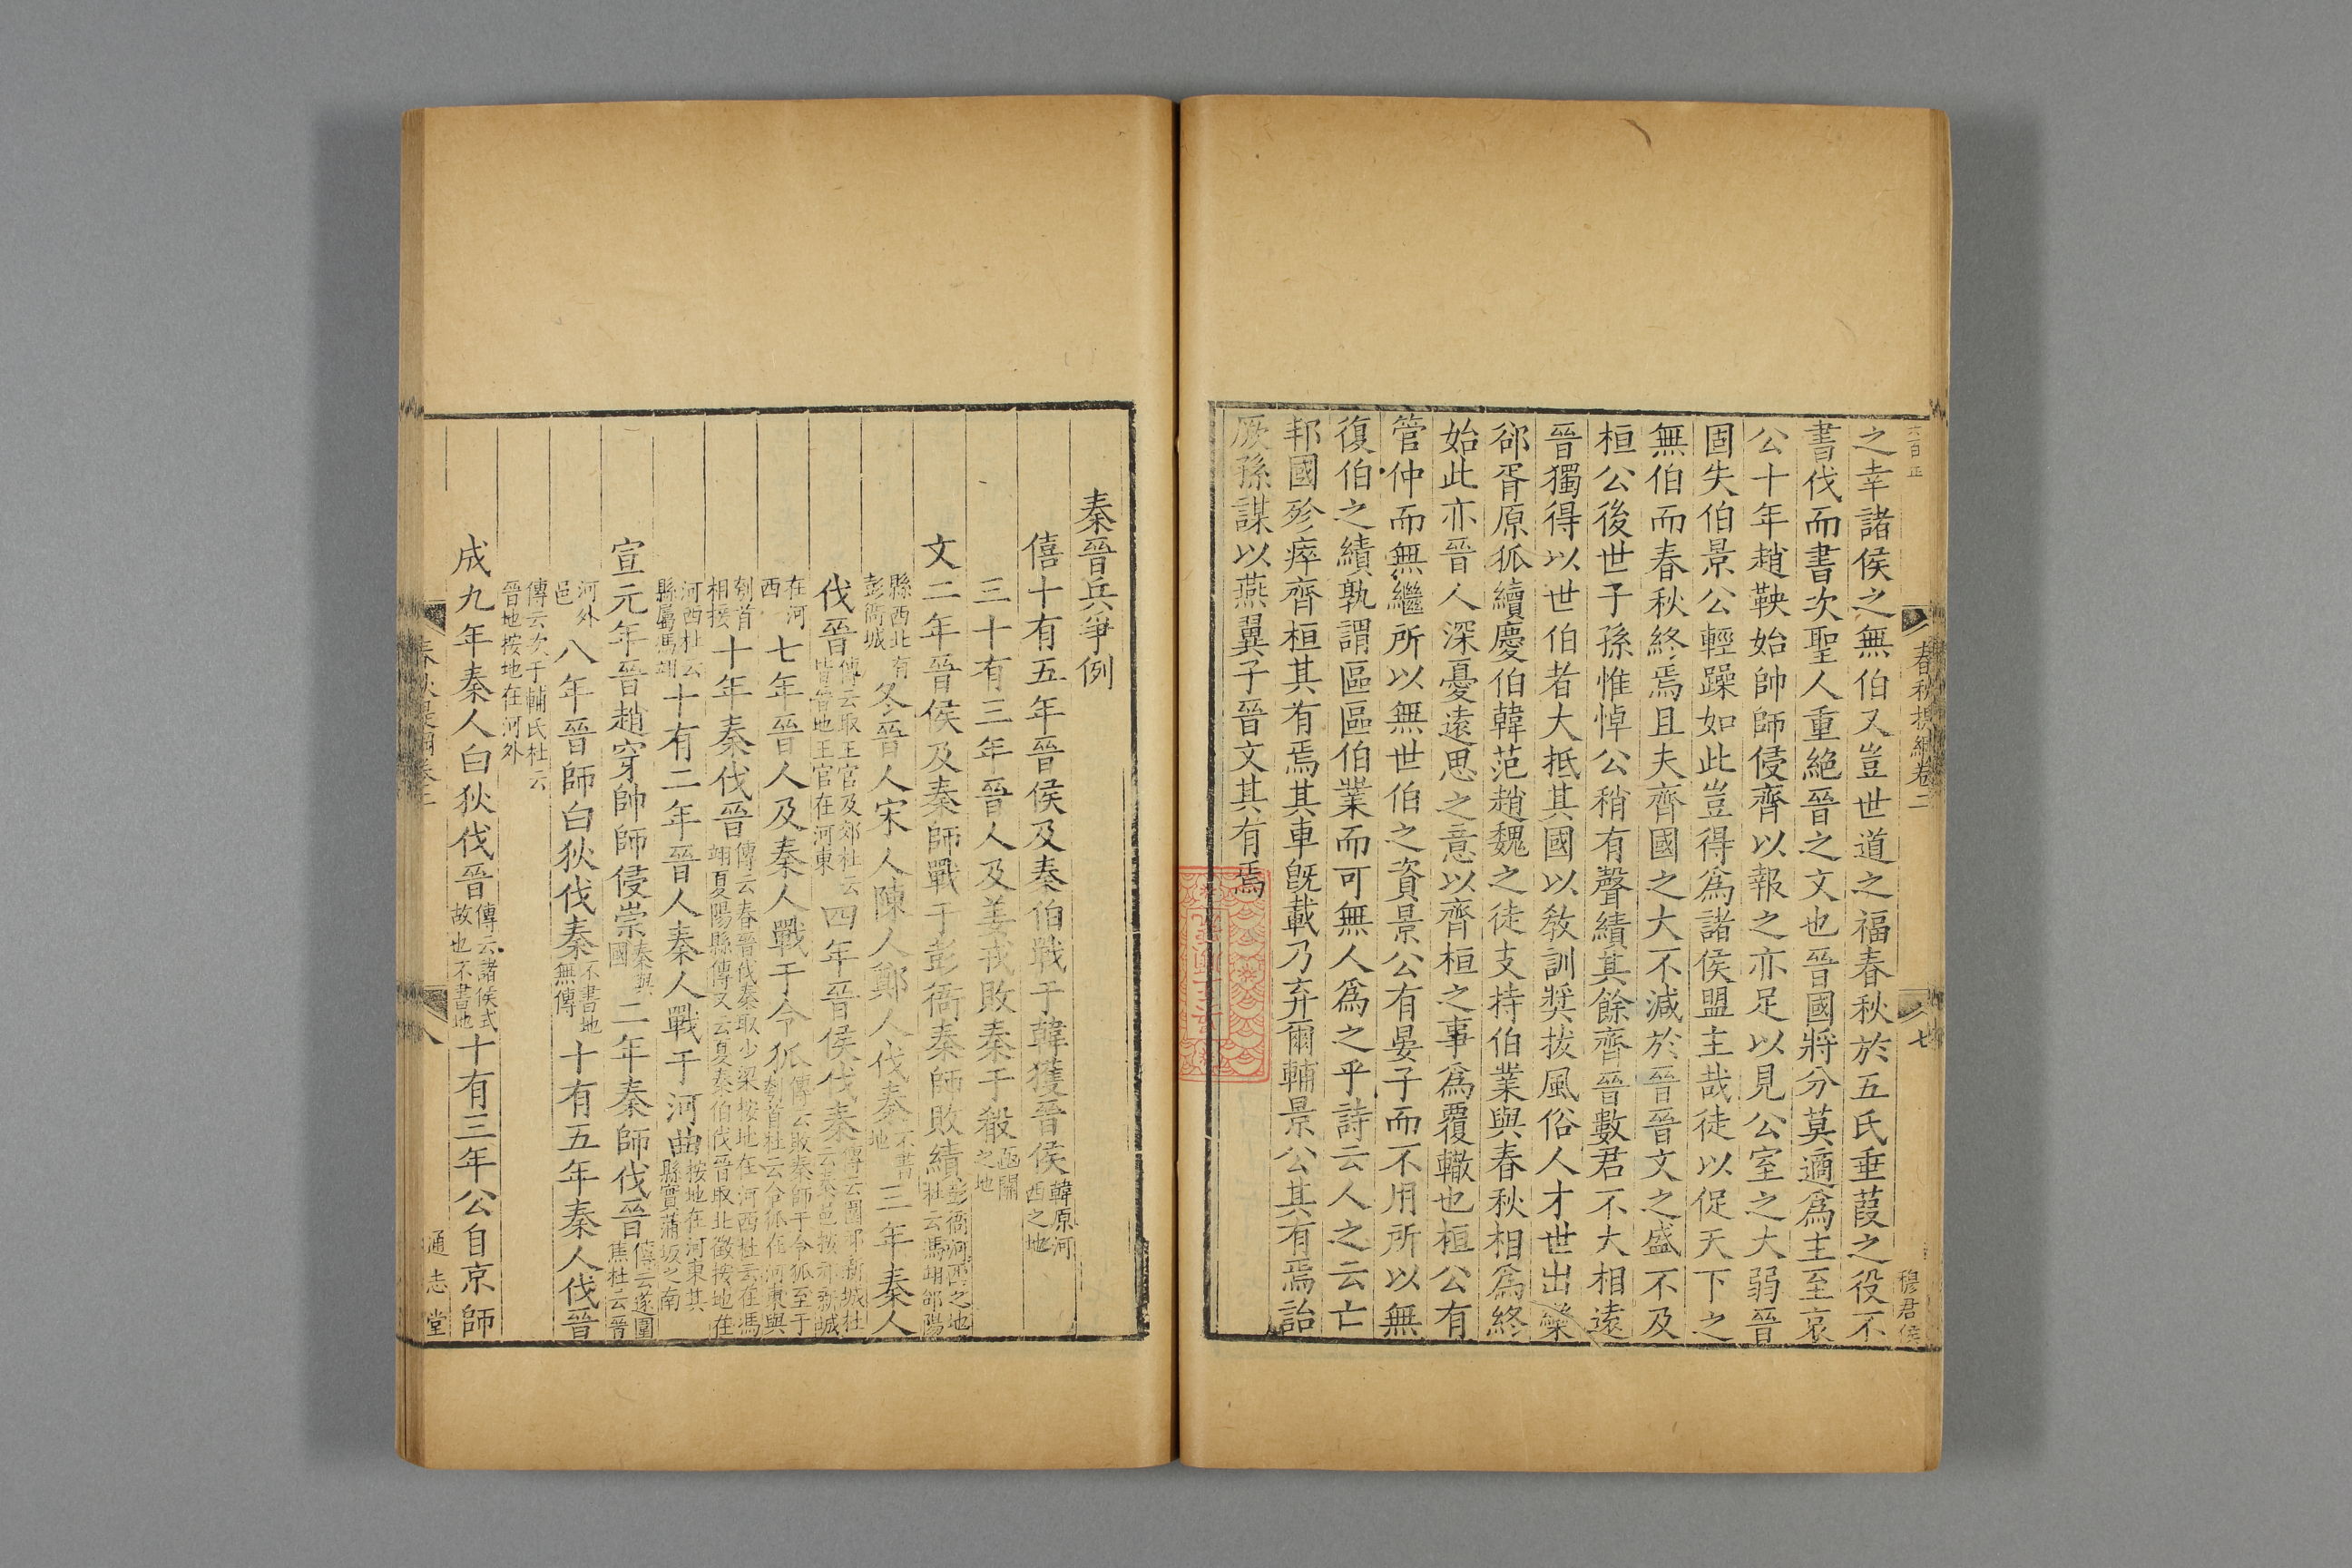 六百正
春秋提綱卷二
七
穆君侯
之幸諸侯之無伯又豈世道之福春秋於五氏垂葭之役不
書伐而書次聖人重絕晉之文也晉國將分莫適爲主至哀
公十年趙鞅始帥師侵齊以報之亦足以見公室之大弱晉
固失伯景公輕躁如此豈得爲諸侯盟主哉徒以促天下之
無伯而春秋終焉且夫齊國之大不減於晉晉文之盛不及
桓公後世子孫惟悼公稍有聲績其餘齊晉數君不大相遠
晉獨得以世伯者大抵其國以敎訓獎拔風俗人才世出欒
郤胥原狐續慶伯韓范趙魏之徒支持伯業與春秋相爲終
始此亦晉人深憂遠思之意以齊桓之事爲覆轍也桓公有
管仲而無繼所以無世伯之資景公有晏子而不用所以無
復伯之績孰謂區區伯業而可無人爲之乎詩云人之云亡
邦國殄瘁齊桓其有焉其車旣載乃弃爾輔景公其有焉詒
厥孫謀以燕翼子晉文其有焉
秦晉兵爭例
僖十有五年晉侯及秦伯戰于韓獲晉侯韓原河西之地
三十有三年晉人及姜戎敗秦于殽函關之地
文二年晉侯及秦師戰于彭衙秦師敗績彭衙河西之地杜云馮翊郃陽
縣西北有彭衙城冬晉人宋人陳人鄭人伐秦不書地三年秦人
伐晉傳云取王官及郊杜云皆晉地王官在河東四年晉侯伐秦傳云圍邧新城杜云秦邑按邧新城
在河西七年晉人及秦人戰于令狐傳云敗秦師于令狐至于刳首杜云令狐在河東與
刳首相接十年秦伐晉傳云春晉伐秦取少梁按地在河西杜云在馮翊夏陽縣傳又云夏秦伯伐晉取北徵按地在
河西杜云縣屬馮翊十有二年晉人秦人戰于河曲按地在河東其縣實蒲坂之南
宣元年晉趙穿帥師侵崇秦與國二年秦師伐晉傳云遂圍焦杜云晉
河外邑八年晉師白狄伐秦不書地無傳十有五年秦人伐晉
傳云次于輔氏杜云晉地按地在河外
成九年秦人白狄伐晉傳云諸侯弍故也不書地十有三年公自京師
春秋提綱卷二
八
通志堂